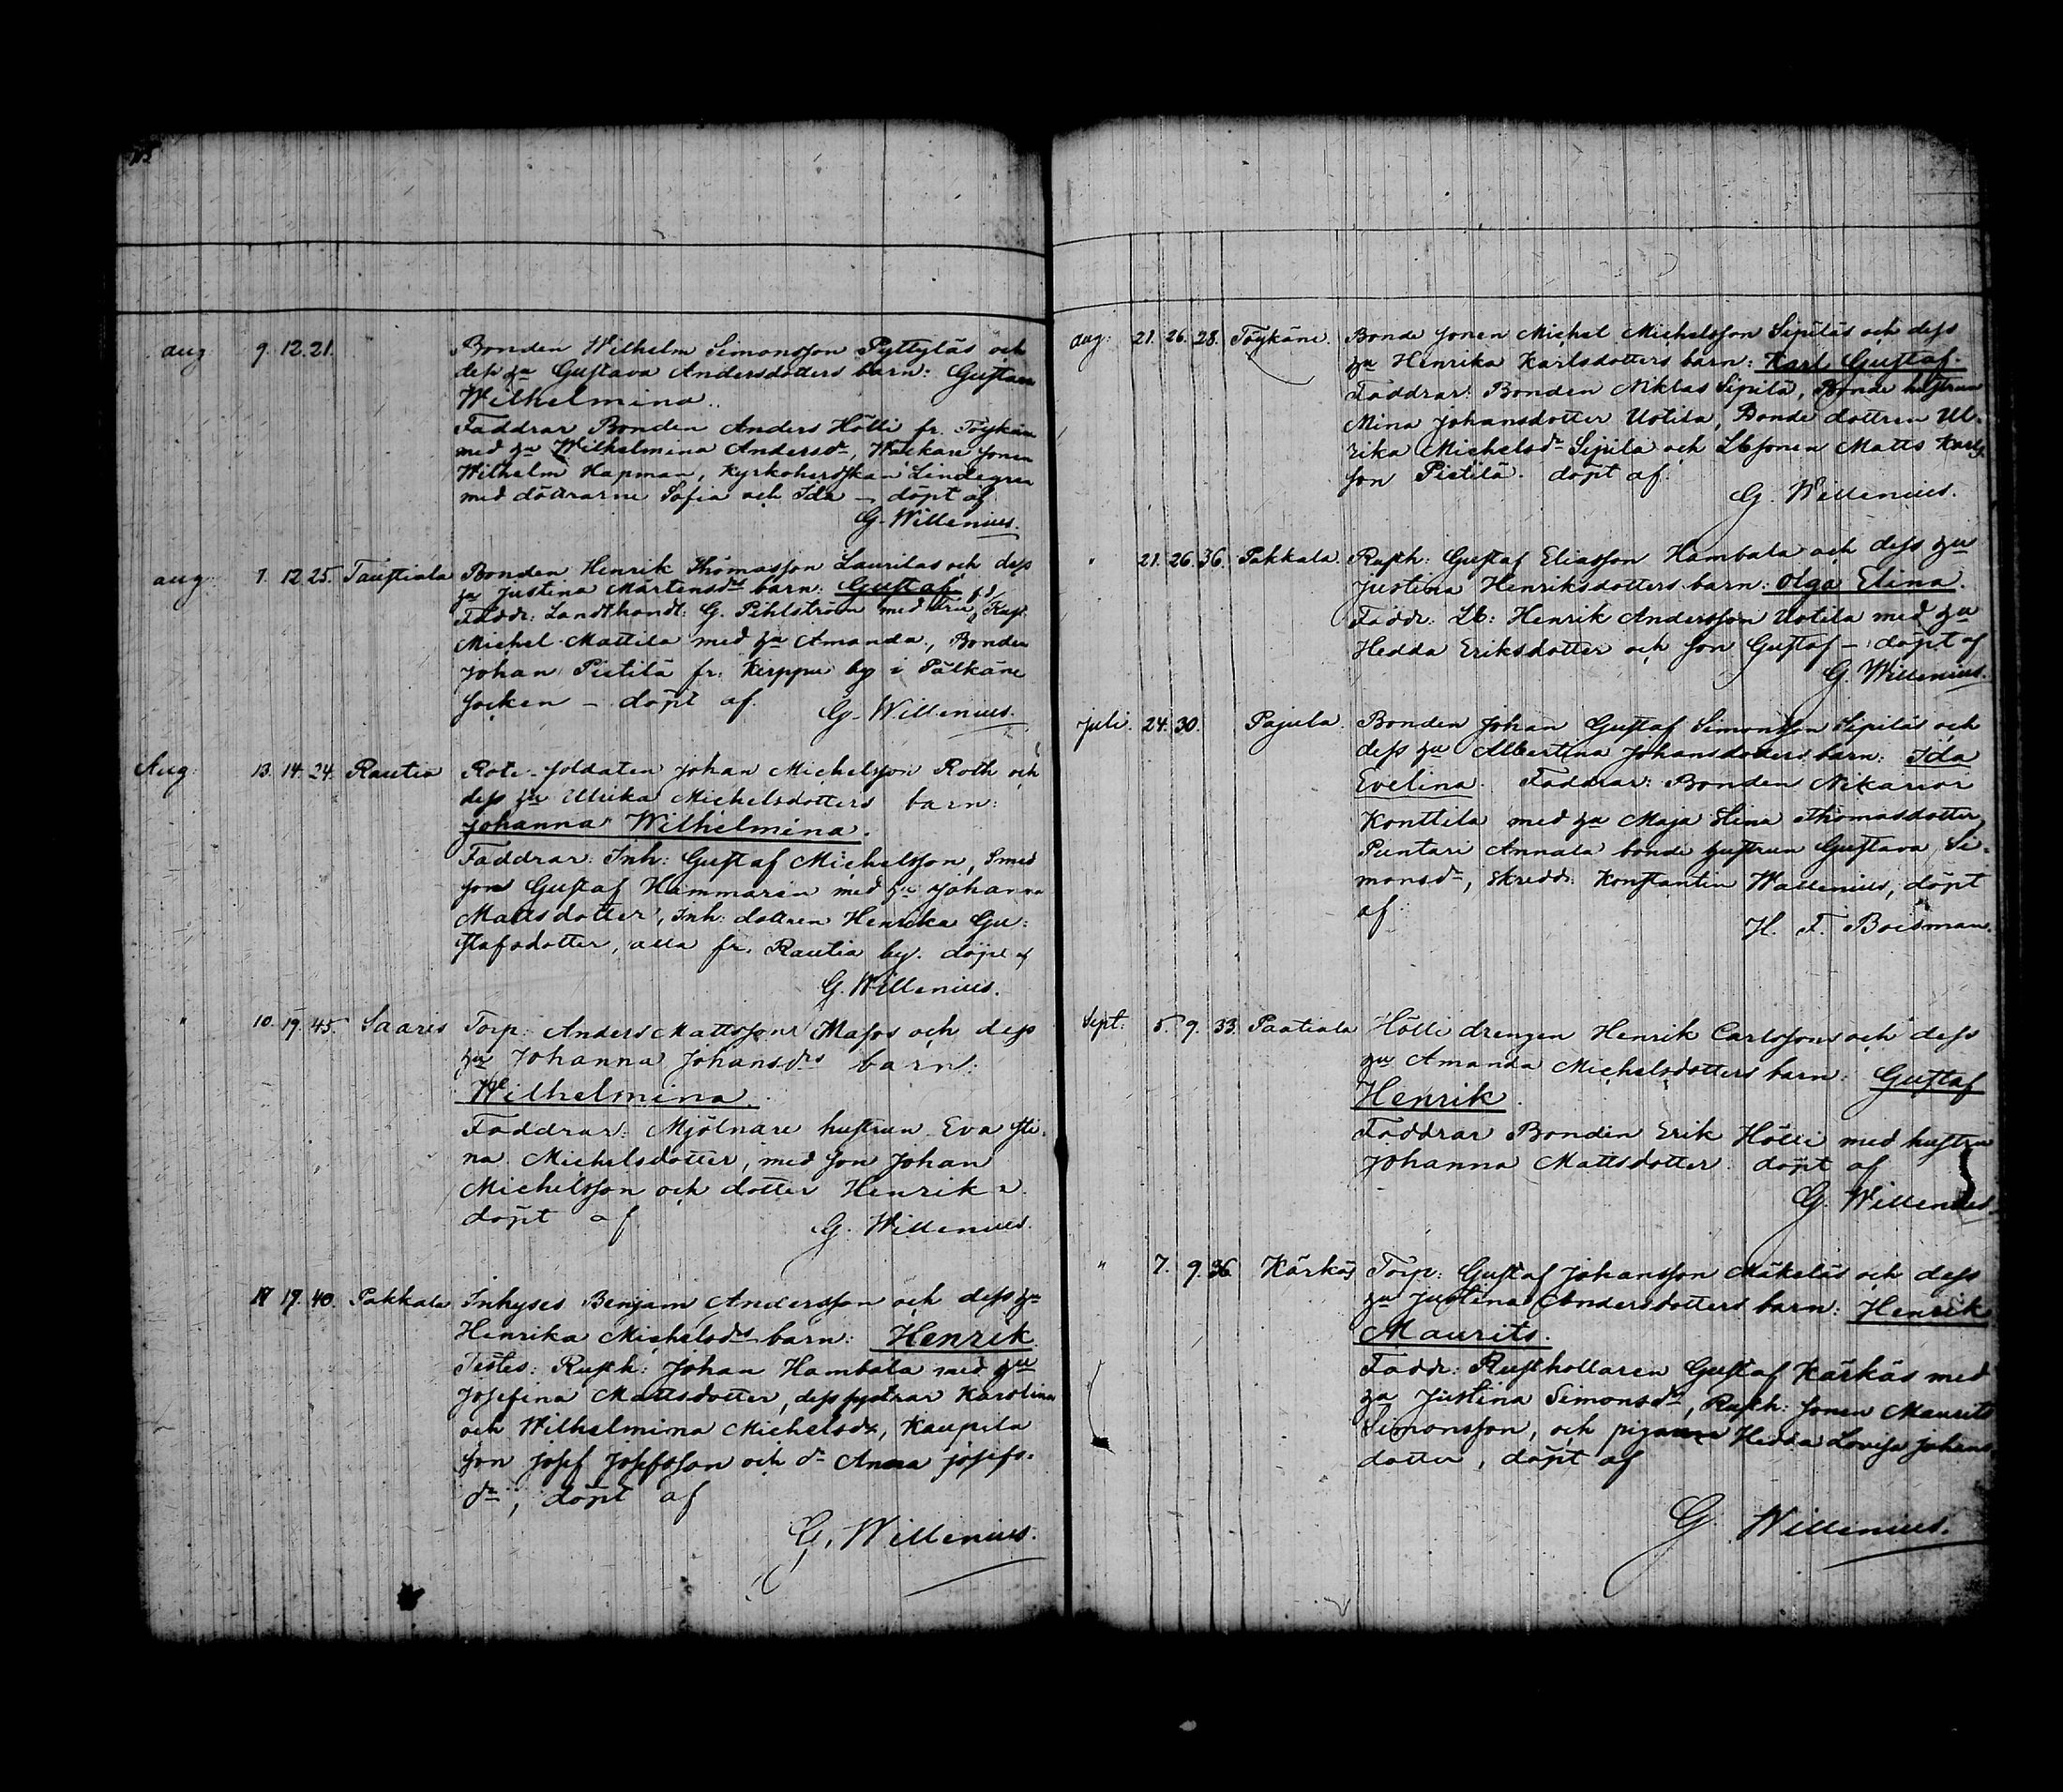 aug: 9. 12. 21. Bonden Wilhelm Simonsson Pyttyläs och
dess hu Gustava Andersdotters barn: Gustava
Wilhelmina.
Faddrar Bonden Anders Hölli fr. Töykäne
med hu Wilhelmina Andersdr, Wäckare sonen
Wilhelm Hapman, Kyrkoherdskan Lindegren
med döttrarne Sofia och Ida – döpt af
G. Willenius.
aug: 7. 12 25. Taustiala Bonden Henrik Thomasson Laurilas och dess
hu Justina Mårtensdrs barn: Gustaf
Faddr: Landthandl: G. Pihlström med fru,
Michel Mattila med hu Amanda, Bonden
Johan Pietilä fr. Kerppu by i Pälkäne
socken – döpt af G. Willenius.
Aug: 13. 14. 24. Rautia Rote-soldaten Johan Michelsson Roth och
dess hu Ulrika Michelsdotters barn:
Johanna Wilhelmina.
Faddrar: Inh: Gustaf Michelsson, Smed
son Gustaf Hammarén med hu Johanna
Mattsdotter, Inh: dottren Henrika Gu-
stafsdotter, alla fr. Rautia by. döpt af
G. Willenius.
" 10. 19. 45. Saaris Torp: Anders Mattssons Masos och dess
hu Johanna Johansdrs barn:
Wilhelmina.
Faddrar: Mjölnare hustrun Eva Sti-
na Michelsdotter, med son Johan
Michelsson och dotter Henrika
döpt af G. Willenius.
17 19. 40. Pakkala Inhyses Benjam Andersson och dess hu
Henrika Michelsdrs barn: Henrik.
Testes: Rusth: Johan Hambala med hu
Josefina Mattsdotter, dess systrar Karolina
och Wilhelmina Michelsdr, Kaupila
son Josef Josefsson och dr Anna Josefs-
dr, döpt af
G. Willenius.
aug: 21. 26. 28. Töykäne. Bonde sonen Michel Michelsson Sipiläs och dess
hu Henrika Karlsdotters barn: Karl Gustaf.
Faddrar: Bonden Niklas Sipilä, Bonde hustrun
Mina Johansdotter Uotila, Bonde dottren Ul-
rika Michelsdr Sipilä och Lb sonen Matts Karls-
son Pietilä. döpt af
G. Willenius.
" 21. 26. 36. Pakkala. Rusth: Gustaf Eliasson Hambala och dess hu
Justina Henriksdotters barn: Olga Elina.
Faddr: Lb: Henrik Andersson Uotila med hu
Hedda Eriksdotter och son Gustaf – döpt af
G. Willenius.
Juli. 24. 30. Pajula. Bonden Johan Gustaf Simonsson Sipiläs och
dess hu Albertina Johansdotters barn: Ida
Evelina. Faddrar: Bonden Nikarior
Konttila med hu Maja Stina Thomasdotter,
Puntari Annala bonde hustrun Gustava Si-
monsdr, skredd: Konstantin Wallenius, döpt
af:
H. F. Boisman.
Sept: 5. 9. 33. Paatiala Hölli drengen Henrik Carlssons och dess
hu Amanda Michelsdotters barn: Gustaf
Henrik.
Faddrar Bonden Erik Hölli med hustru
Johanna Mattsdotter. döpt af
G. Willenius.
" 7. 9. 36. Kärkäs Torp: Gustaf Johansson Mäkeläs och dess
hu Justina Andersdotters barn: Henrik
Maurits.
Faddr: Rusthollaren Gustaf Kärkäs med
hu Justina Simonsdr, Rusth: sonen Maurits
Simonsson, och pigan Hedda Lovisa Johans
dotter, döpt af
G. Willenius.